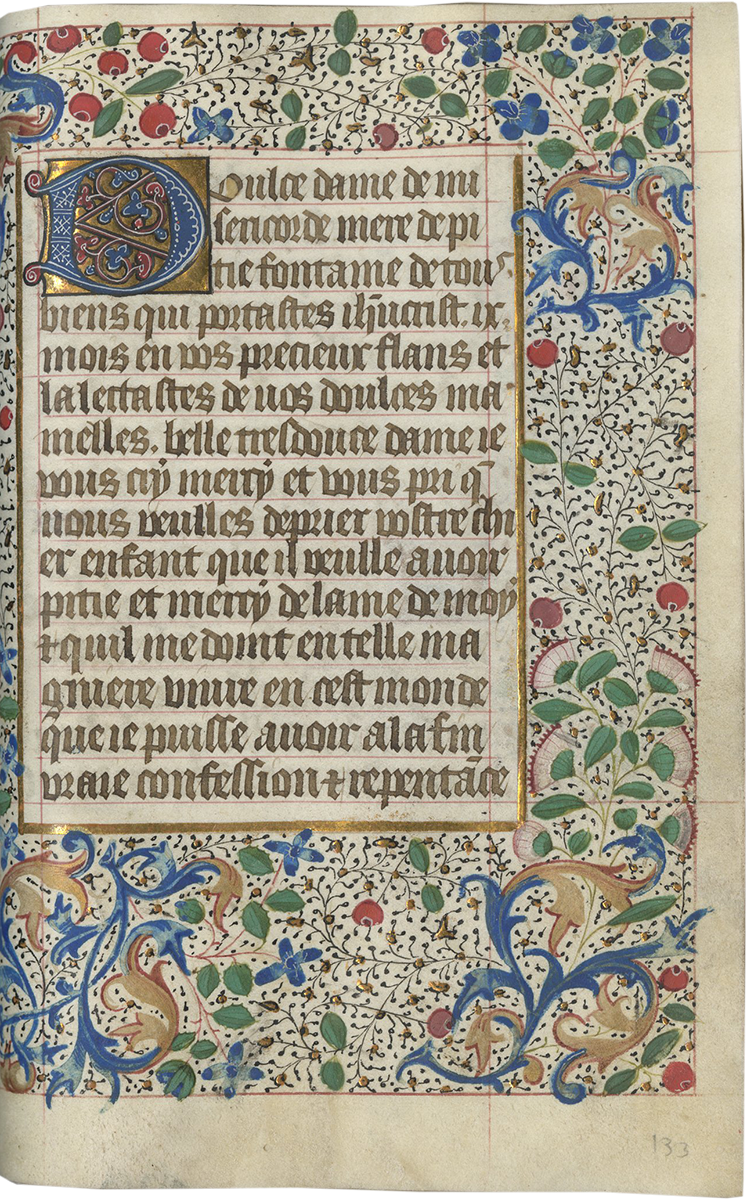 Doulce dame de mi
sericorde mere de pi
tie fontaine de tous
biens qui portastes ihũcrist ix.
mois en vos precieux flans et
lalettastes de vos doulces ma
melles. belle tresdouce dame ie
vous cry mercy et vous pri q̃
vous veulles deprier vostre chi
er enfant que il veulle auoir
pitie et mercy de lame de moy
⁊ quil me doint en telle ma
gniere viure en cest monde
que ie puisse auoir a la fin
vraie confession ⁊ repentãce
133